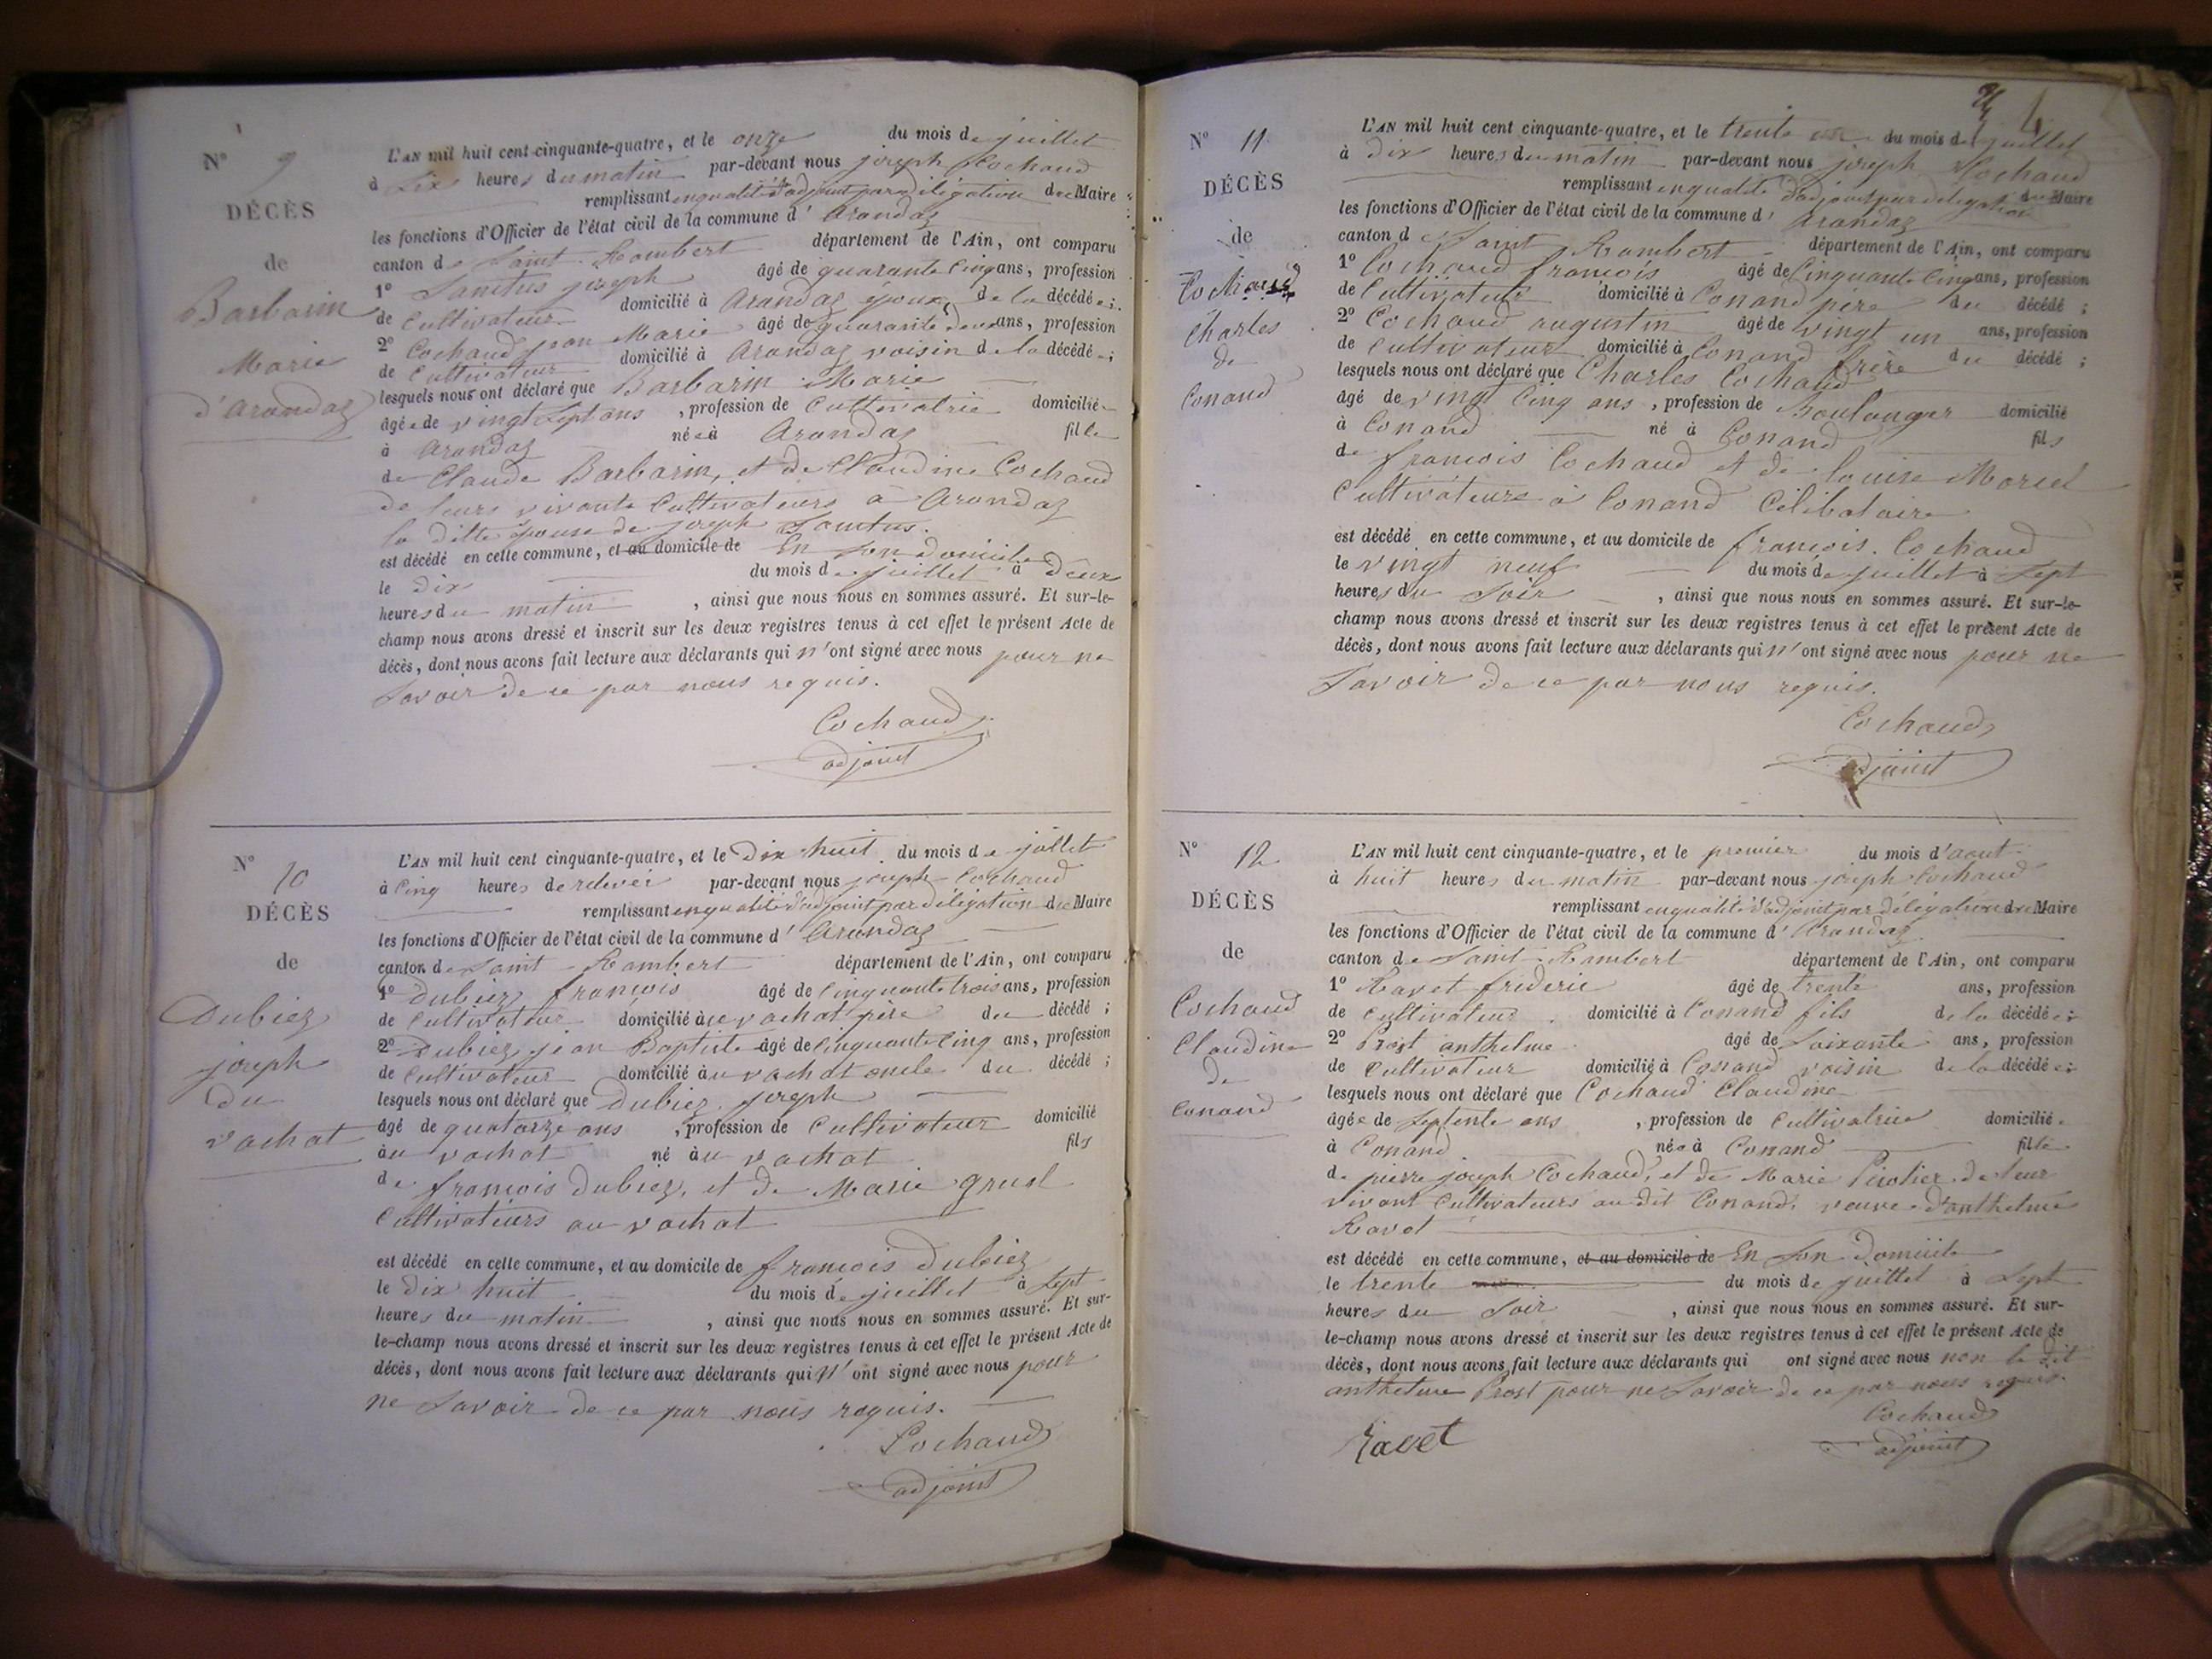 N° 9
DÉCÈS
de
Barbarin
Marie
d'arandaz
L'AN mil huit cent cinquante-quatre, et le onze du mois de juillet
à Dix heures du matin par-devant nous joseph Cochaud
remplissant en qualité d'adjoint par déligation du Maire
les fonctions d'Officier de l'état civil de la commune d' Arandaz
canton de Saint Rambert département de l'Ain, ont comparu
1° Sanctus joseph âgé de quarante Cinq ans, profession
de Cultivateur domicilié à Arandaz époux de la décédée ;
2° Cochaud jean Marie âgé de quarante deux ans, profession
de Cultivateur domicilié à Arandaz voisin de la décédée ;
lesquels nous ont déclaré que Barbarin Marie
âgée de vingt Sept ans , profession de Cultivatrie domiciliée
à Arandaz née à Arandaz fille
de Claude Barbarin, et de Claudine Cochaud
de leurs vivants Cultivateurs à Arandaz
la ditte épouse de joseph Sanctus.
est décédé en cette commune, et au domicile de En Son domicile
le dix du mois de juillet à deux
heures du matin , ainsi que nous nous en sommes assuré. Et sur-le-
champ nous avons dressé et inscrit sur les deux registres tenus à cet effet le présent Acte de
décès, dont nous avons fait lecture aux déclarants qui n'ont signé avec nous pour ne
Savoir de ce par nous requis.
Cochaud
adjoint
N° 10
DÉCÈS
de
Dubiez
joseph
du
vachat
L'AN mil huit cent cinquante-quatre, et le Dix huit du mois de jûllet
à Cinq heures de relevée par-devant nous joseph Cochaud
remplissant en qualité d'adjoint par déligation du Maire
les fonctions d'Officier de l'état civil de la commune d' Arandaz
canton de Saint Rambert département de l'Ain, ont comparu
1° Dubiez françois âgé de Cinquante trois ans, profession
de Cultivateur domicilié au vachat père du décédé ;
2° Dubiez jean Baptiste âgé de Cinquante Cinq ans, profession
de Cultivateur domicilié au vachat oncle du décédé ;
lesquels nous ont déclaré que Dubiez joseph
âgé de quatorze ans , profession de Cultivateur domicilié
au vachat né au vachat fils
de françois Dubiez, et de Marie grusl
Cultivateurs au vachat
est décédé en cette commune, et au domicile de françois Dubiez
le Dix huit du mois de juillet à Sept
heures du matin , ainsi que nous nous en sommes assuré. Et sur-
le-champ nous avons dressé et inscrit sur les deux registres tenus à cet effet le présent Acte de
décès, dont nous avons fait lecture aux déclarants qui N'ont signé avec nous pour
ne Savoir de ce par nous requis.
Cochaud
adjoint
4
N° 11
DÉCÈS
de
Cochaud
Charles
de
Conand
L'AN mil huit cent cinquante-quatre, et le trente du mois de juillet
à dix heures du matin par-devant nous joseph Cochaud
remplissant en qualité d'adjoint par déligation du Maire
les fonctions d'Officier de l'état civil de la commune d' Arandaz
canton de Saint Rambert département de l'Ain, ont comparu
1° Cochaud françois âgé de Cinquante Cinq ans, profession
de Cultivateur domicilié à Conand père du décédé ;
2° Cochaud augustin âgé de vingt un ans, profession
de Cultivateur domicilié à Conand frère du décédé ;
lesquels nous ont déclaré que Charles Cochaud
âgé de vingt Cinq ans , profession de Boulanger domicilié
à Conand né à Conand fils
de françois Cochaud et de louise Morcel
Cultivateurs à Conand Célibataire
est décédé en cette commune, et au domicile de françois Cochaud
le vingt neuf du mois de juillet à Sept
heures du Soir , ainsi que nous nous en sommes assuré. Et sur-le-
champ nous avons dressé et inscrit sur les deux registres tenus à cet effet le présent Acte de
décès, dont nous avons fait lecture aux déclarants qui n'ont signé avec nous pour ne
Savoir de ce par nous requis.
Cochaud
adjoint
N° 12
DÉCÈS
de
Cochaud
Claudine
de
Conand
L'AN mil huit cent cinquante-quatre, et le premier du mois d'aout
à huit heures du matin par-devant nous joseph Cochaud
remplissant en qualité d'adjoint par déligation du Maire
les fonctions d'Officier de l'état civil de la commune d' Arandaz
canton de Saint Rambert département de l'Ain, ont comparu
1° Ravet friderie âgé de trente ans, profession
de Cultivateur domicilié à Conand fils de la décédée ;
2° Prost anthelme âgé de Soixante ans, profession
de Cultivateur domicilié à Conand voisin de la décédée ;
lesquels nous ont déclaré que Cochaud Claudine
âgée de Septente ans , profession de Cultivatrice domiciliée
à Conand née à Conand fille
de pierre joseph Cochaud, et de Marie de leur
vivant Cultivateurs au dit Conand, veuve d'anthelme
Ravet
est décédé en cette commune, et au domicile de En Son Domicile
le trente du mois de juillet à Sept
heures du Soir , ainsi que nous nous en sommes assuré. Et sur-
le-champ nous avons dressé et inscrit sur les deux registres tenus à cet effet le présent Acte de
décès, dont nous avons fait lecture aux déclarants qui ont signé avec nous non le dit
anthelme Prost pour ne Savoir de ce par nous requis.
Ravet
Cochaud
adjoint